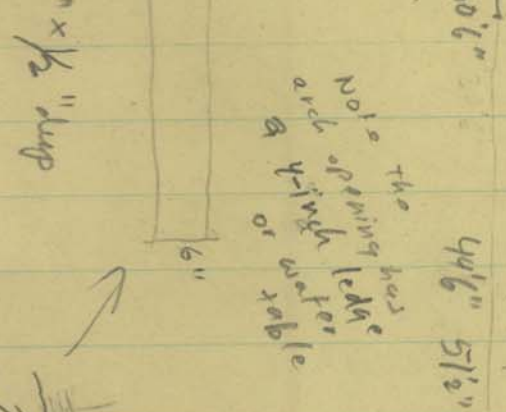 0'6"
44'6" 5'1/2"
Note the
arch opening has
a 4-inch ledge
or water
table
6"
x 1/2" deep